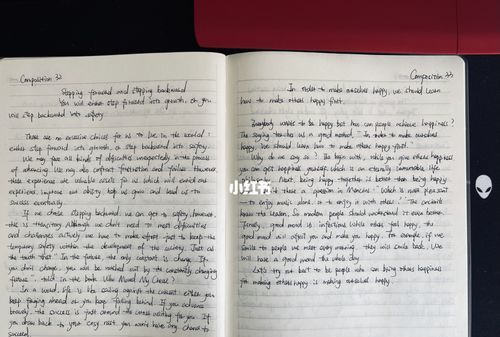 Composition 32
Stepping forward and stepping backward
You will either step forward into growth, or you
will step backward into safety.
There are no excessive choices for us to live in the world:
either step forward into growth, or step backward into safety.
We may face all kinds of difficulties unexpectedly in the process
of advancing. We may also confront frustration and failure. However,
these experience are valuable assets for us which will enrich our
experience, improve our ability, help us grow and lead us to
success eventually.
If we choose stepping backward, we can get to safety, however,
it is transitory. Although we don't need to meet difficulties
and challenges actively, we have to make effort just to keep the
temporary safety within the development of the society. Just as
the truth that "In the future, the only constant is change. If
you don't change, you can be washed out by the constantly changing
future", told in the book 《Who Moved My Cheese?》
In a word, life is like sailing against the current: either you
keep forging ahead or you keep falling behind. If you advance
bravely, the success is just around the corner waiting for you. If
you draw back to your cosy nest, you won't have any chance to
succeed.
Composition 33
In order to make ourselves happy, we should learn
how to make others happy first.
Everybody wants to be happy but how can people achieve happiness?
The saying teaches us a good method, "In order to make ourselves
happy, we should learn how to make others happy first."
Why do we say so? To begin with, while you give others happiness
you can get happiness yourself, which is an eternally
Next, being happy together is better than being happy
there's a question in Mencius: "Which is more pleasant
— to enjoy music alone, or to enjoy it with others?" The ancients
know the reason. So modern people should understand it even better.
Finally, good mood is infectious. While others feel happy, the
good mood will affect you and make you happy. For example, if we
smile to people we meet every morning, they will smile back. We
will have a good mood the whole day.
Let's try our best to be people who can bring others happiness
for making others happy is making ourselves happy.
小红书